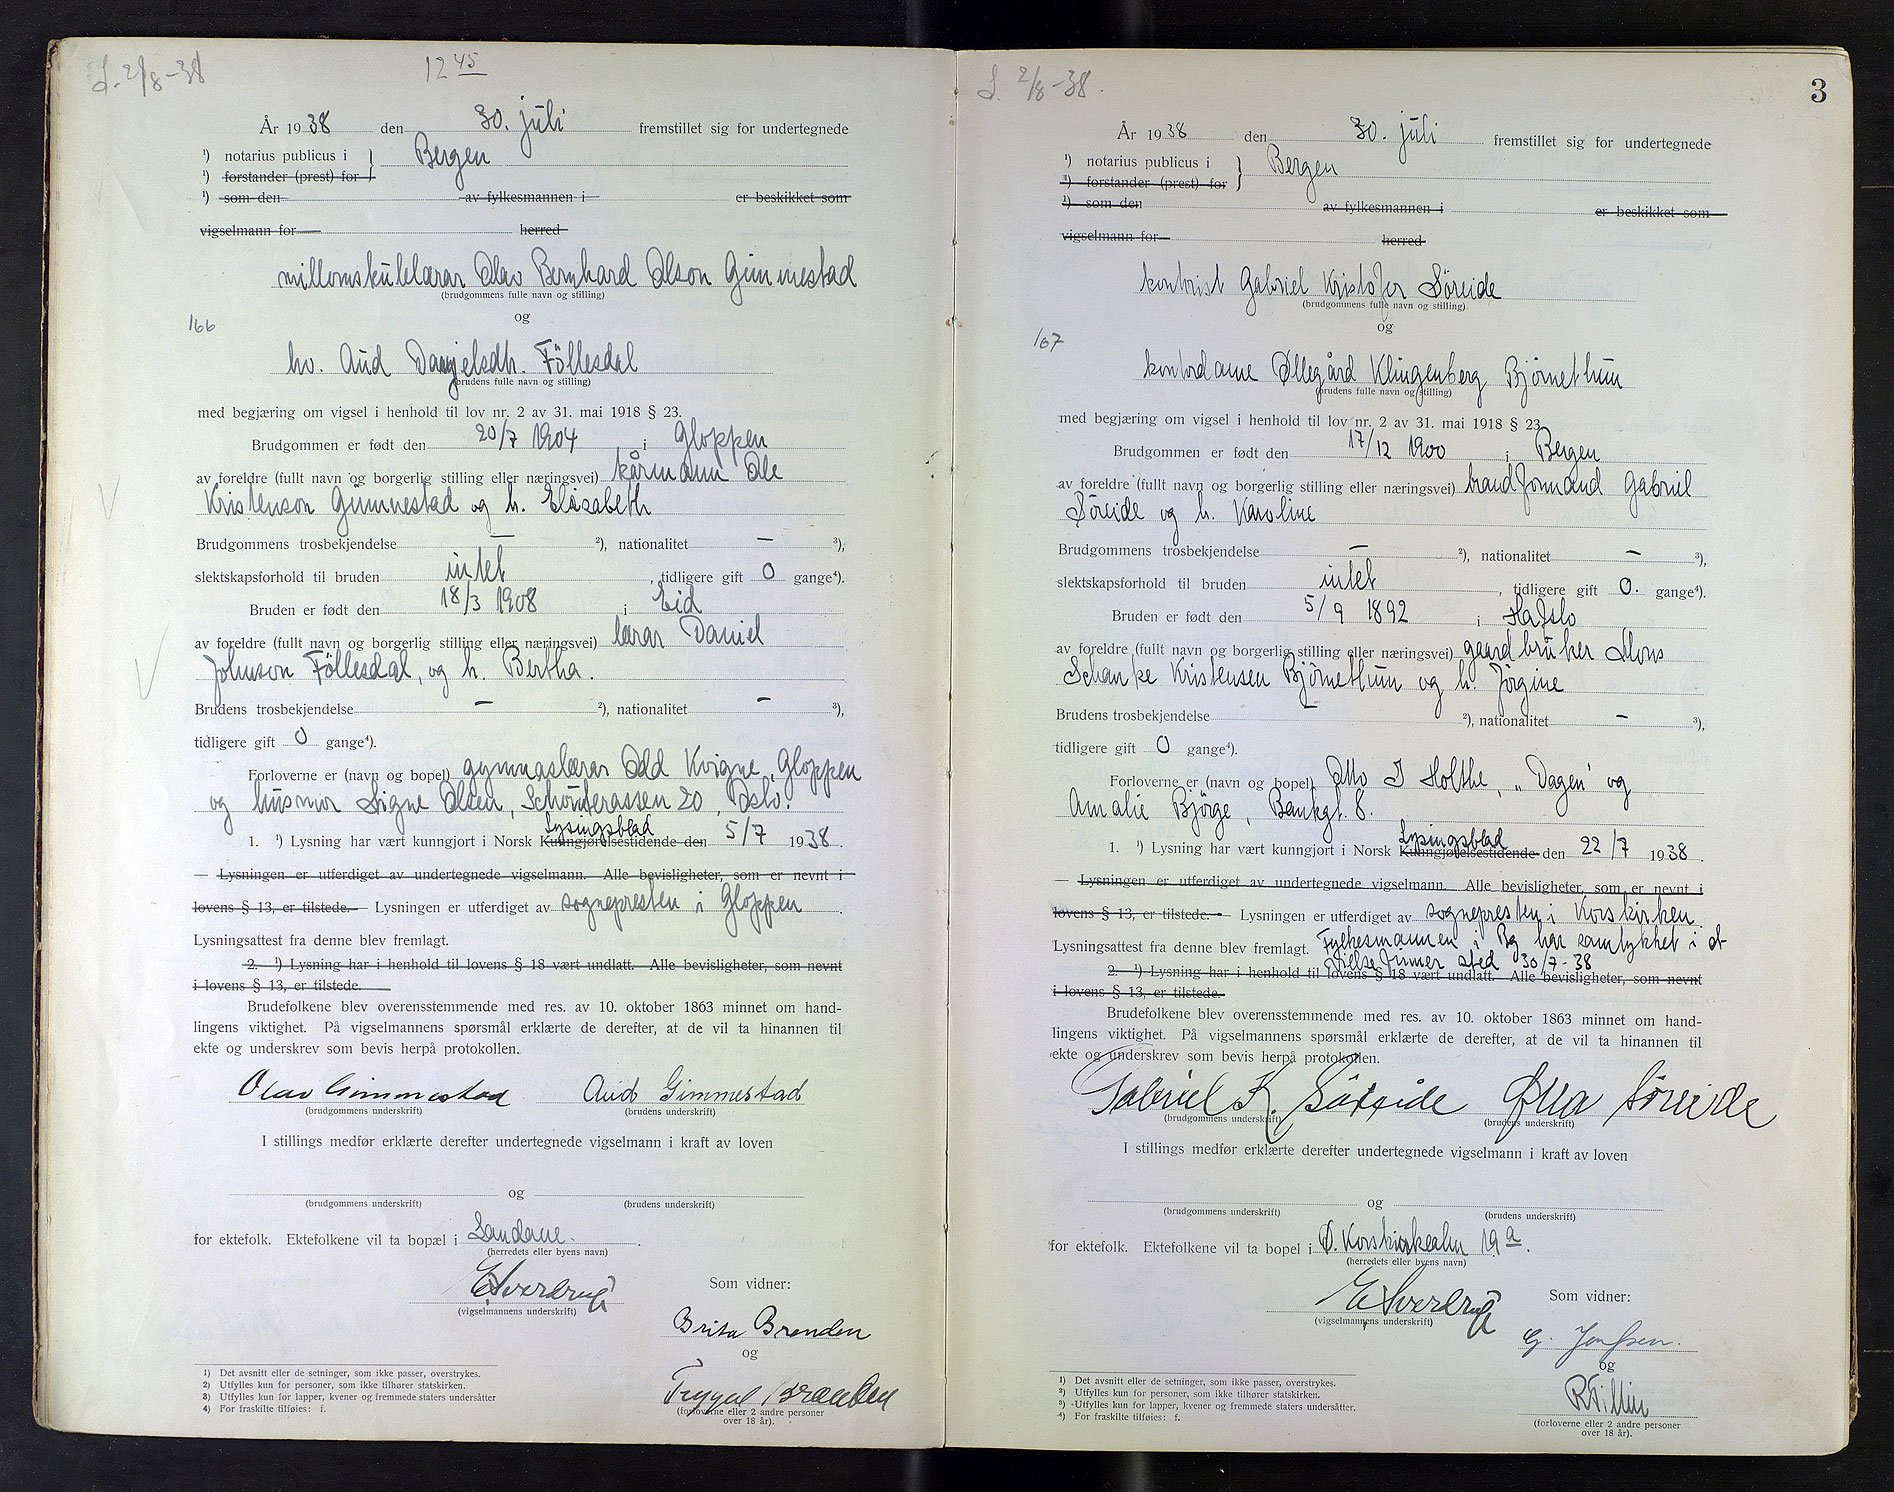 S. 2/8-38
12 45
År 1938 den 30. juli fremstillet sig for undertegnede
¹) notarius publicus i } Bergen
¹) forstander (prest) for
¹) som den av fylkesmannen i er beskikket som
vigselmann for herred
millomskulelærar Olav Bernhard Olson Gimmestad
(brudgommens fulle navn og stilling)
og
166
hv. Aud Danjelsdtr. Föllesdal
(brudens fulle navn og stilling)
med begjæring om vigsel i henhold til lov nr. 2 av 31. mai 1918 § 23.
Brudgommen er født den 20/7 1904 i Gloppen
av foreldre (fullt navn og borgerlig stilling eller næringsvei) kårmann Ole
Kristenson Gimmestad og h. Elisabeth
Brudgommens trosbekjendelse — ²), nationalitet — ³),
slektskapsforhold til bruden intet, tidligere gift 0 gange⁴).
Bruden er født den 18/3 1908 i Eid
av foreldre (fullt navn og borgerlig stilling eller næringsvei) lærar Daniel
Johnson Föllesdal, og h. Bertha.
Brudens trosbekjendelse — ²), nationalitet — ³),
tidligere gift 0 gange⁴).
Forloverne er (navn og bopel) gymnaslærar Odd Kvigne, Gloppen
og husmor Signe Olsen, Schouterassen 20, Oslo.
Lysingsblad
1. ¹) Lysning har vært kunngjort i Norsk Kunngjørelsestidende den 5/7 1938.
— Lysningen er utferdiget av undertegnede vigselmann. Alle bevisligheter, som er nevnt i
lovens § 13, er tilstede. — Lysningen er utferdiget av sognepresten i Gloppen.
Lysningsattest fra denne blev fremlagt.
2. ¹) Lysning har i henhold til lovens § 18 vært undlatt. Alle bevisligheter, som nevnt
i lovens § 13, er tilstede.
Brudefolkene blev overensstemmende med res. av 10. oktober 1863 minnet om hand-
lingens viktighet. På vigselmannens spørsmål erklærte de derefter, at de vil ta hinannen til
ekte og underskrev som bevis herpå protokollen.
Olav Gimmestad Aud Gimmestad
(brudgommens underskrift) (brudens underskrift)
I stillings medfør erklærte derefter undertegnede vigselmann i kraft av loven
og
(brudgommens underskrift) (brudens underskrift)
for ektefolk. Ektefolkene vil ta bopæl i Sandane.
(herredets eller byens navn)
E Sverdrup Som vidner:
(vigselmannens underskrift)
Brita Brenden
og
Trygve
(forloverne eller 2 andre personer
over 18 år).
1) Det avsnitt eller de setninger, som ikke passer, overstrykes.
2) Utfylles kun for personer, som ikke tilhører statskirken.
3) Utfylles kun for lapper, kvener og fremmede staters undersåtter
4) For fraskilte tilføies: f.
S. 2/8-38.
3
År 1938 den 30. juli fremstillet sig for undertegnede
¹) notarius publicus i } Bergen
¹) forstander (prest) for
¹) som den av fylkesmannen i er beskikket som
vigselmann for herred
kontorist Gabriel Kristofer Söreide
(brudgommens fulle navn og stilling)
og
167
kontordame Øllegård Klingenberg Bjørnethun
(brudens fulle navn og stilling)
med begjæring om vigsel i henhold til lov nr. 2 av 31. mai 1918 § 23
Brudgommen er født den 17/12 1900 i Bergen
av foreldre (fullt navn og borgerlig stilling eller næringsvei) brandformand Gabriel
Söreide og h. Karoline
Brudgommens trosbekjendelse — ²), nationalitet — ³),
slektskapsforhold til bruden intet, tidligere gift 0. gange⁴).
Bruden er født den 5/9 1892 i Hafslo
av foreldre (fullt navn og borgerlig stilling eller næringsvei) gaardbruker Mons
Schanke Kristensen Bjørnethun og h. Jörgine
Brudens trosbekjendelse — ²), nationalitet — ³),
tidligere gift 0 gange⁴).
Forloverne er (navn og bopel) Otto J Holthe, „Dagen" og
Amalie Bjørge, Bankgt. 8.
Lysingsblad
1. ¹) Lysning har vært kunngjort i Norsk Kunngjørelsestidende den 22/7 1938.
— Lysningen er utferdiget av undertegnede vigselmann. Alle bevisligheter, som er nevnt i
lovens § 13, er tilstede. — Lysningen er utferdiget av sognepresten i Korskirken
Lysningsattest fra denne blev fremlagt. Fylkesmannen i Bg har samtykket i at
vielse finner sted 30/7-38
2. ¹) Lysning har i henhold til lovens § 18 vært undlatt. Alle bevisligheter, som nevnt
i lovens § 13, er tilstede.
Brudefolkene blev overensstemmende med res. av 10. oktober 1863 minnet om hand-
lingens viktighet. På vigselmannens spørsmål erklærte de derefter, at de vil ta hinannen til
ekte og underskrev som bevis herpå protokollen.
Gabriel K. Söreide Ølla Söreide
(brudgommens underskrift) (brudens underskrift)
I stillings medfør erklærte derefter undertegnede vigselmann i kraft av loven
og
(brudgommens underskrift) (brudens underskrift)
for ektefolk. Ektefolkene vil ta bopel i Ø. Korskirkealm 19 a.
(herredets eller byens navn)
E Sverdrup Som vidner:
(vigselmannens underskrift)
og
(forloverne eller 2 andre personer
over 18 år).
1) Det avsnitt eller de setninger, som ikke passer, overstrykes.
2) Utfylles kun for personer, som ikke tilhører statskirken.
3) Utfylles kun for lapper, kvener og fremmede staters undersåtter.
4) For fraskilte tilføies: f.